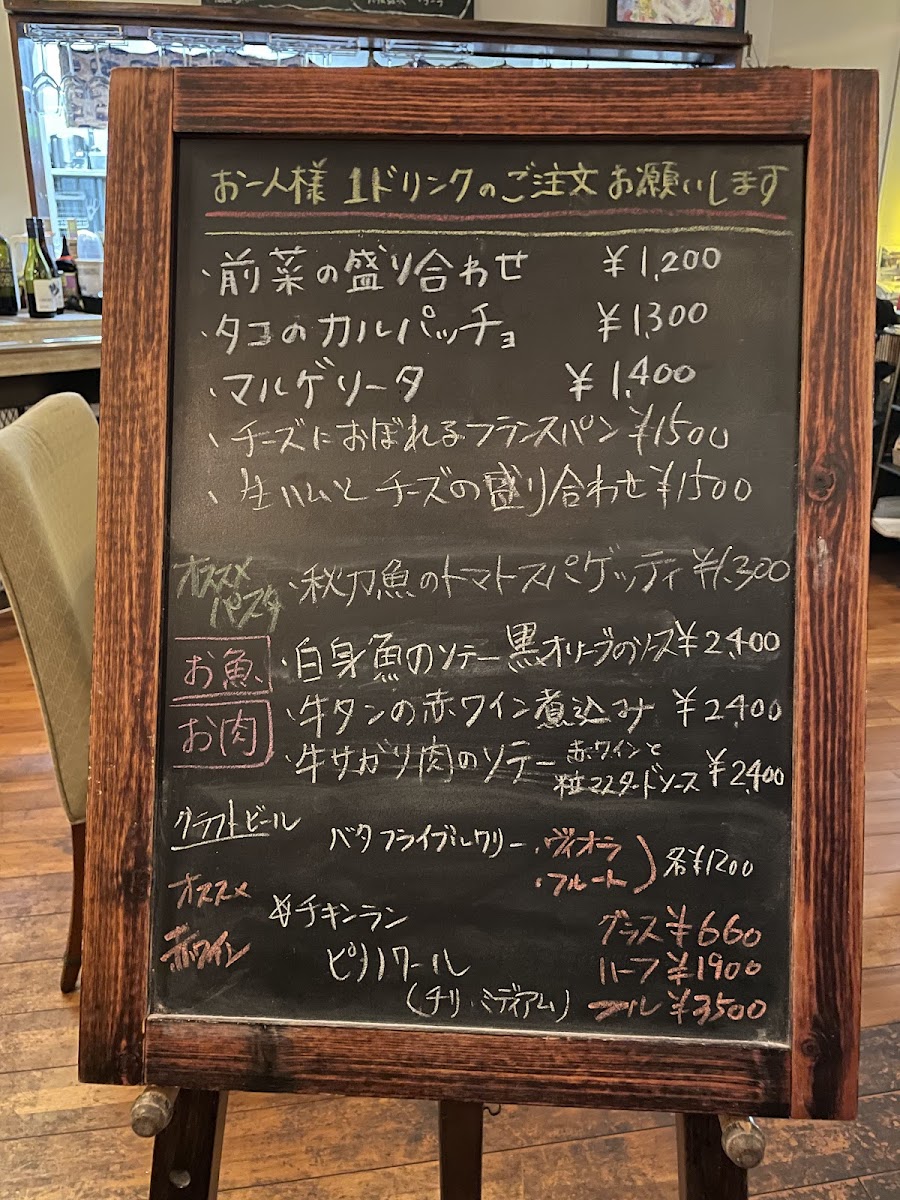 お一人様 1ドリンクのご注文お願いします
・前菜の盛り合わせ ¥1,200
・タコのカルパッチョ ¥1,300
・マルゲリータ ¥1,400
・チーズにおぼれるフランスパン ¥1500
・生ハムとチーズの盛り合わせ ¥1500
オススメ
パスタ
・秋刀魚のトマトスパゲッティ ¥1,300
お魚 ・白身魚のソテー黒オリーブのソース ¥2,400
お肉 ・牛タンの赤ワイン煮込み ¥2400
・牛サガリ肉のソテー 赤ワインと
粒マスタードソース ¥2,400
クラフトビール
バタフライブルワリー ・ヴィオラ
・フルート
各¥1200
オススメ
赤ワイン
チキンラン
ピノノワール
(チリ・ミディアム)
グラス ¥660
ハーフ ¥1900
フル ¥3500